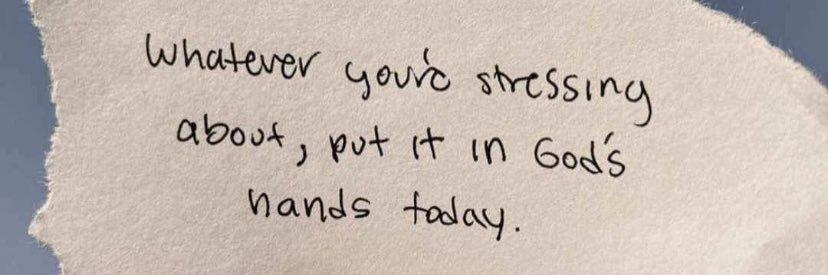 Whatever you're stressing
about, put it in God's
hands today.